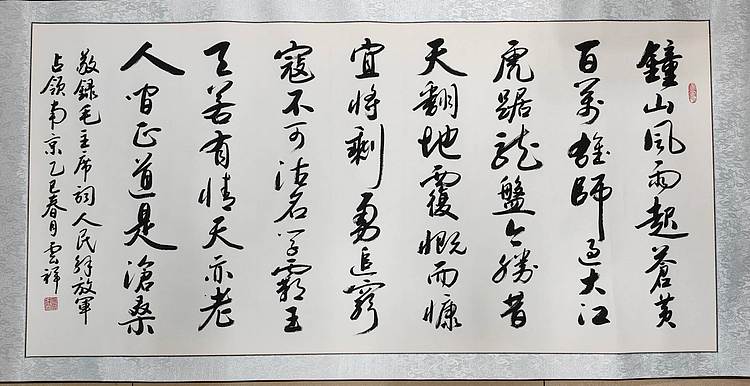 鐘山風雨起蒼黄
百萬雄師過大江
虎踞龍盤今勝昔
天翻地覆慨而慷
宜将剩勇追窮
寇不可沽名学霸王
天若有情天亦老
人間正道是滄桑
敬録毛主席詞人民解放軍
占領南京乙巳春月雲祥